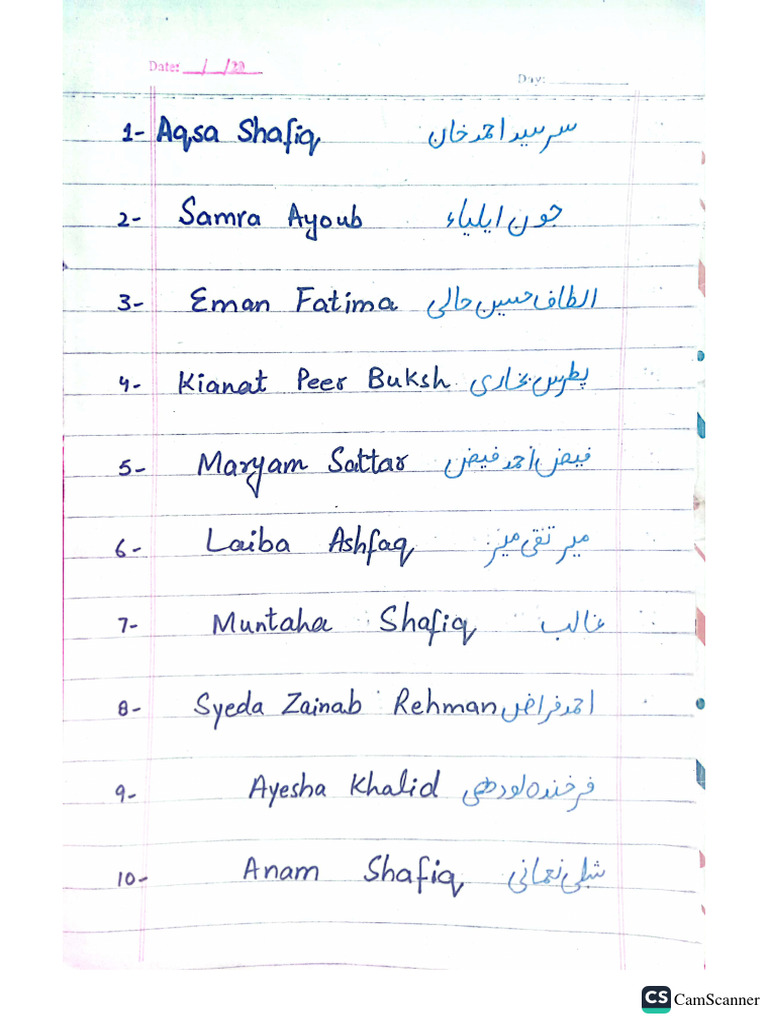 Date: / /20
Day:
1- Aqsa Shafiq سر سید احمد خان
2- Samra Ayoub جون ایلیاء
3- Eman Fatima الطاف حسین حالی
4- Kianat Peer Buksh پطرس بخاری
5- Maryam Sattar فیض احمد فیض
6- Laiba Ashfaq میر تقی میر
7- Muntaha Shafiq غالب
8- Syeda Zainab Rehman احمد فراض
9- Ayesha Khalid فرخندہ لودھی
10- Anam Shafiq شبلی نعمانی
CS CamScanner